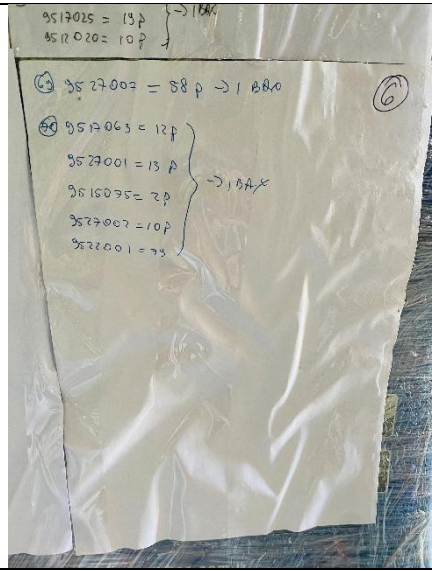 9517025 = 19p
9512020 = 10p } → 1 BAX
6
69 9527007 = 58 p → 1 BAO
70 9517063 = 12p
9527001 = 13 p
9515075 = 2p } → 1 BAX
9527002 = 10p
9522001 = 79